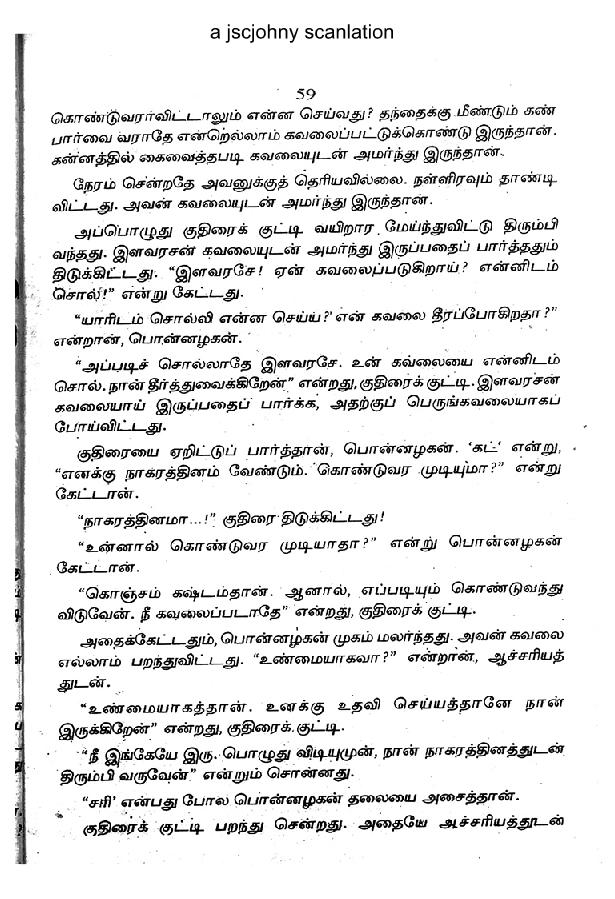 a jscjohny scanlation
59
கொண்டுவரர்விட்டாலும் என்ன செய்வது? தந்தைக்கு மீண்டும் கண்
பார்வை வராதே என்றெல்லாம் கவலைப்பட்டுக்கொண்டு இருந்தான்.
கன்னத்தில் கைவைத்தபடி கவலையுடன் அமர்ந்து இருந்தான்.
நேரம் சென்றதே அவனுக்குத் தெரியவில்லை. நள்ளிரவும் தாண்டி
விட்டது. அவன் கவலையுடன் அமர்ந்து இருந்தான்.
அப்பொழுது குதிரைக் குட்டி வயிறார மேய்ந்துவிட்டு திரும்பி
வந்தது. இளவரசன் கவலையுடன் அமர்ந்து இருப்பதைப் பார்த்ததும்
திடுக்கிட்டது. “இளவரசே! ஏன் கவலைப்படுகிறாய்? என்னிடம்
சொல்!” என்று கேட்டது.
“யாரிடம் சொல்வி என்ன செய்ய்? என் கவலை தீரப்போகிறதா?”
என்றான், பொன்னழகன்.
“அப்படிச் சொல்லாதே இளவரசே. உன் கவலையை என்னிடம்
சொல். நான் தீர்த்துவைக்கிறேன்” என்றது, குதிரைக் குட்டி. இளவரசன்
கவலையாய் இருப்பதைப் பார்க்க, அதற்குப் பெருங்கவலையாகப்
போய்விட்டது.
குதிரையை ஏறிட்டுப் பார்த்தான், பொன்னழகன். ‘கட்’ என்று,
“எனக்கு நாகரத்தினம் வேண்டும். கொண்டுவர முடியுமா?” என்று
கேட்டான்.
“நாகரத்தினமா...!” குதிரை திடுக்கிட்டது!
“உன்னால் கொண்டுவர முடியாதா?” என்று பொன்னழகன்
கேட்டான்.
“கொஞ்சம் கஷ்டம்தான். ஆனால், எப்படியும் கொண்டுவந்து
விடுவேன். நீ கவலைப்படாதே” என்றது, குதிரைக் குட்டி.
அதைக்கேட்டதும், பொன்னழகன் முகம் மலர்ந்தது. அவன் கவலை
எல்லாம் பறந்துவிட்டது. “உண்மையாகவா?” என்றான், ஆச்சரியத்
துடன்.
“உண்மையாகத்தான். உனக்கு உதவி செய்யத்தானே நான்
இருக்கிறேன்” என்றது, குதிரைக் குட்டி.
“நீ இங்கேயே இரு. பொழுது விடியுமுன், நான் நாகரத்தினத்துடன்
திரும்பி வருவேன்” என்றும் சொன்னது.
“சரி’ என்பது போல பொன்னழகன் தலையை அசைத்தான்.
குதிரைக் குட்டி பறந்து சென்றது. அதையே ஆச்சரியத்துடன்